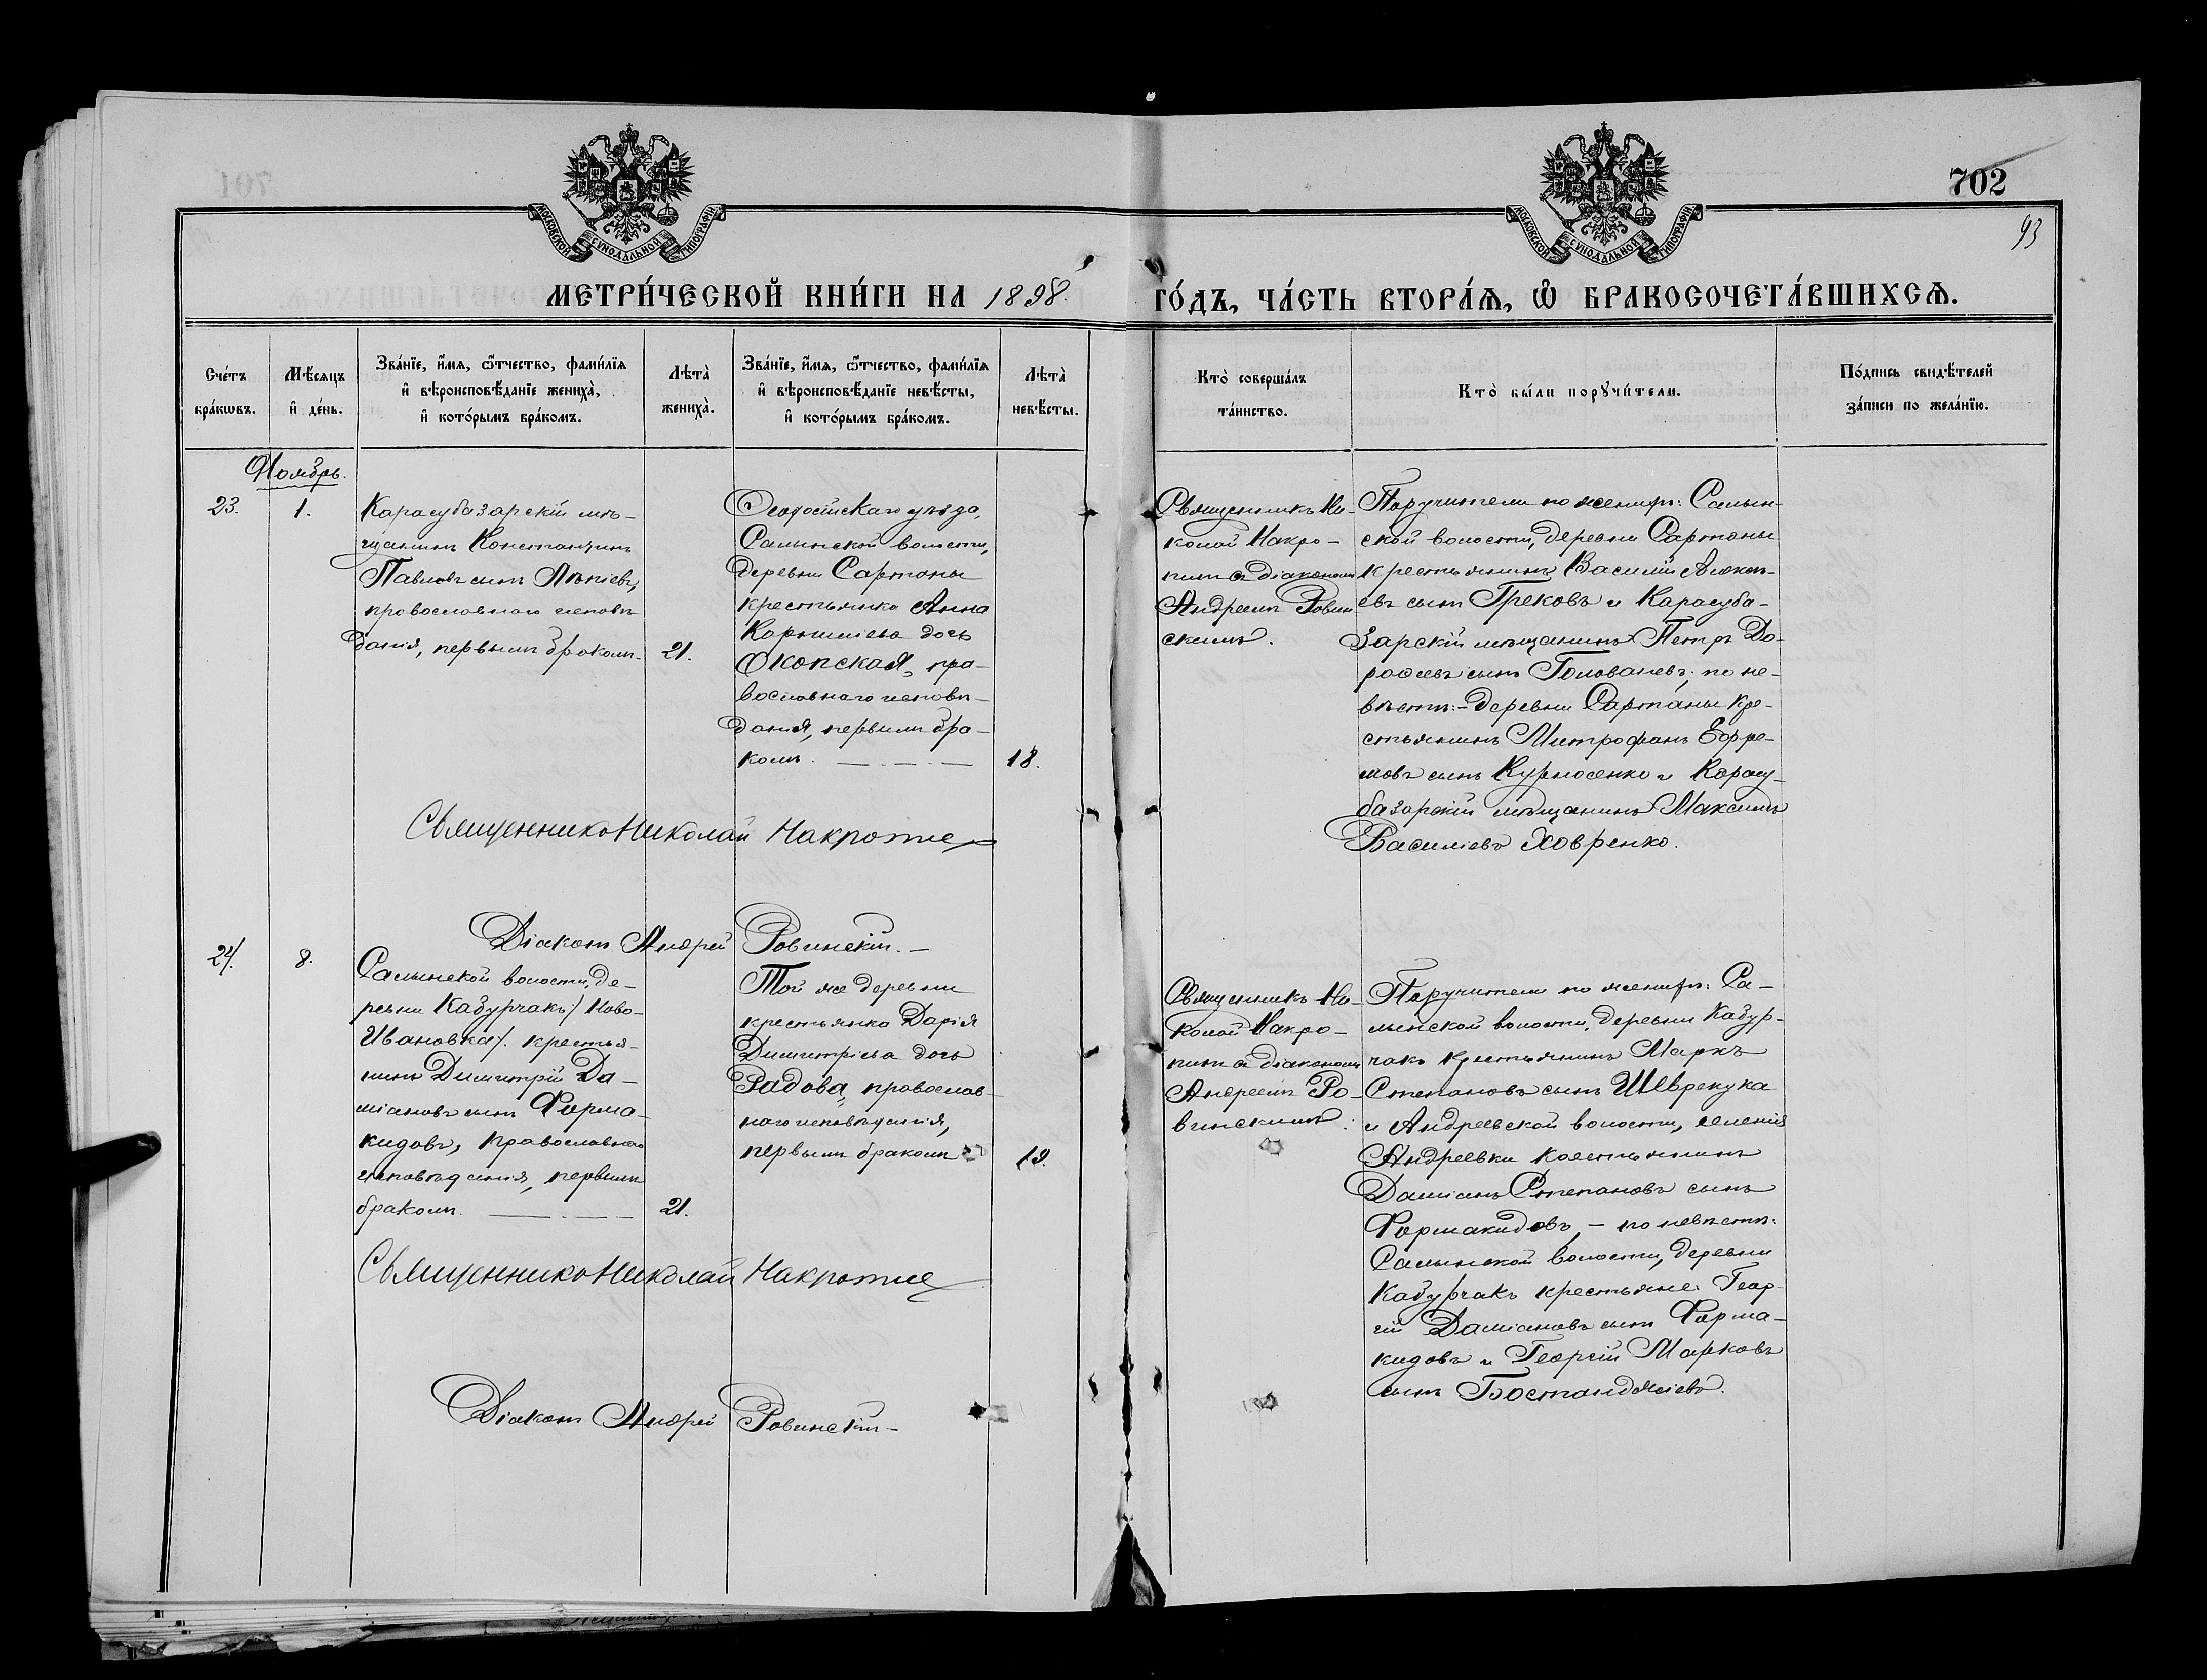 702
93
МОСКОВСКОЙ СѴНОДАЛЬНОЙ ТИПОГРАФІИ
МОСКОВСКОЙ СѴНОДАЛЬНОЙ ТИПОГРАФІИ
МЕТРИ́ЧЕСКОЙ КНИ́ГИ НА 1898. ГО́ДЪ, ЧА́СТЬ ВТОРА́Ѧ, Ѽ БРАКОСОЧЕТА́ВШИХСѦ.
Сче́тъ бра́кѡвъ.
Мѣ́сяцъ и҆ де́нь.
Зва́нїе, и҆́мя, ѻ҆́тчество, фами́лїя и҆ вѣроисповѣ́данїе жениха̀, и҆ кото́рымъ бра́комъ.
Лѣта̀ жениха̀.
Зва́нїе, и҆́мя, ѻ҆́тчество, фами́лїя и҆ вѣроисповѣ́данїе невѣ́сты, и҆ кото́рымъ бра́комъ.
Лѣта̀ невѣ́сты.
Кто̀ соверша́лъ та́инство.
Кто̀ бы́ли порꙋчи́тели.
По́дпись свидѣ́телей за́писи по жела́нїю.
Ноябрь.
23.
1.
Карасубазарскій мѣ-
щанинъ Константинъ
Павловъ сынъ
православнаго исповѣ
данія, первымъ бракомъ.
21.
Ѳеодосійскаго уѣзда,
Салынской волости,
деревни Сартаны
крестьянка Анна
Корниліева дочь
Окопская, пра-
вославнаго исповѣ-
данія, первымъ бра-
комъ.
18.
Священникъ Ни-
колай Накро-
пинъ съ діакономъ
Андреемъ Ровин
скимъ.
Поручители по женихѣ: Салын-
ской волости, деревни Сартаны
крестьянинъ Василій Алексѣ-
евъ сынъ Грековъ и Карасуба-
зарскій мѣщанинъ Петръ До-
роѳеевъ сынъ Головачевъ; по не-
вѣстѣ:- деревни Сартаны кре-
стьянинъ Митрофанъ Ефре-
мовъ сынъ Курносенко и Карасу-
базарскій мѣщанинъ Максимъ
Василіевъ Ховренко.
Священникъ Николай
Діаконъ Андрей Ровинскій.-
24.
8.
Салынской волости, де-
ревни Кабурчакъ /Ново-
Ивановка/. крестья-
нинъ Димитрій Да-
міановъ сынъ Фарма-
кидовъ, православнаго
исповѣданія, первымъ
бракомъ.
21.
Той же деревни
крестьянка Дарія
Димитріева дочь
Радова, православ-
наго исповѣданія,
первымъ бракомъ
19.
Священникъ Ни-
колай Накро-
пинъ съ діакономъ
Андреемъ Ро-
винскимъ.
Поручители по женихѣ: Са-
лынской волости, деревни Кабур-
чакъ крестьянинъ Маркъ
Степановъ сынъ Шеврекука
и Андреевской волости, селенія
Андреевки крестьянинъ
Даміанъ Степановъ сынъ
Фармакидовъ, - по невѣстѣ:
Салынской волости, деревни
Кабурчакъ крестьяне: Геор-
гій Даміановъ сынъ Фарма-
кидовъ и Георгій Марковъ
сынъ Бостанджіевъ.
Священникъ Николай
Діаконъ Андрей Ровинскій-